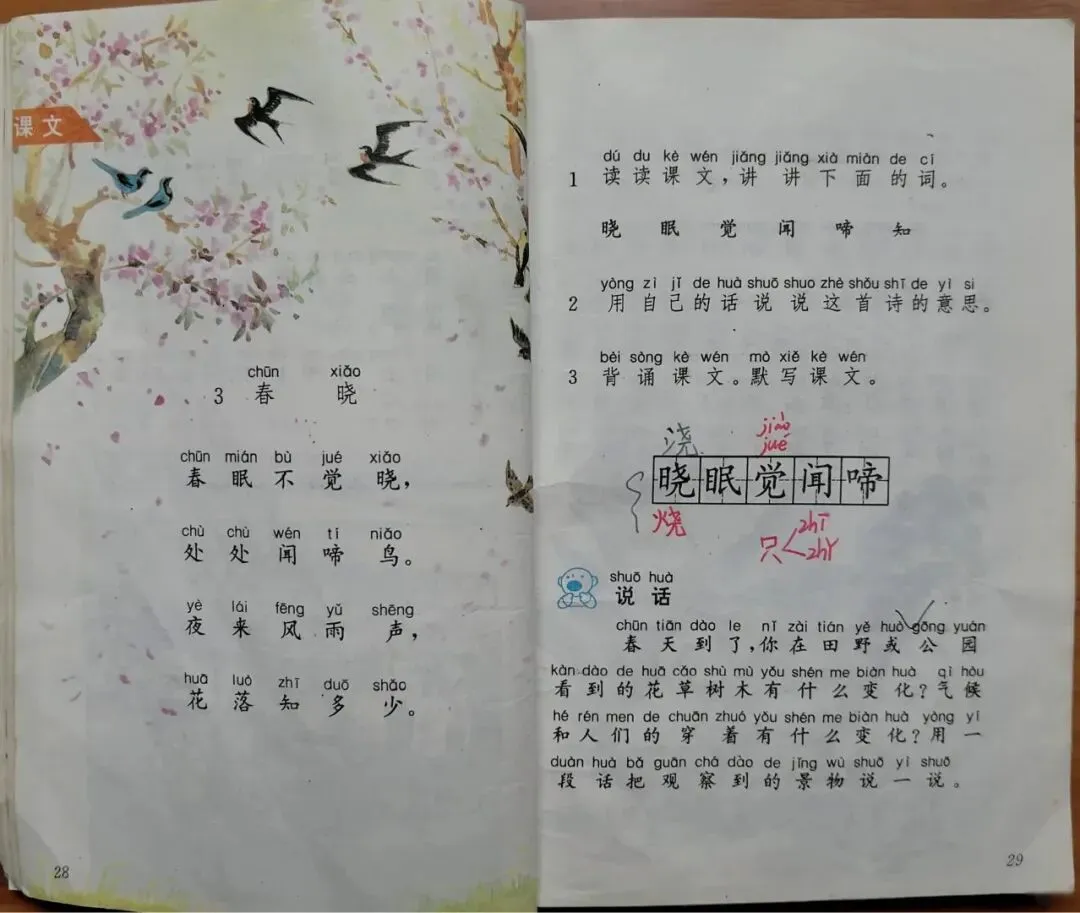 课文
chūn xiǎo
3 春 晓
chūn mián bù jué xiǎo
春 眠 不 觉 晓，
chù chù wén tí niǎo
处 处 闻 啼 鸟。
yè lái fēng yǔ shēng
夜 来 风 雨 声，
huā luò zhī duō shǎo
花 落 知 多 少。
28
dú du kè wén jiǎng jiǎng xià miàn de cí
1 读读课文，讲讲下面的词。
晓 眠 觉 闻 啼 知
yòng zì jǐ de huà shuō shuo zhè shǒu shī de yì si
2 用自己的话说说这首诗的意思。
bèi sòng kè wén mò xiě kè wén
3 背诵课文。默写课文。
浇 jiào
jué
晓眠觉闻啼
烧 只 zhī
zhǐ
shuō huà
说话
chūn tiān dào le nǐ zài tián yě huò gōng yuán
春天到了，你在田野或公园
kàn dào de huā cǎo shù mù yǒu shén me biàn huà qì hòu
看到的花草树木有什么变化？气候
hé rén men de chuān zhuó yǒu shén me biàn huà yòng yí
和人们的穿着有什么变化？用一
duàn huà bǎ guān chá dào de jǐng wù shuō yì shuō
段话把观察到的景物说一说。
29